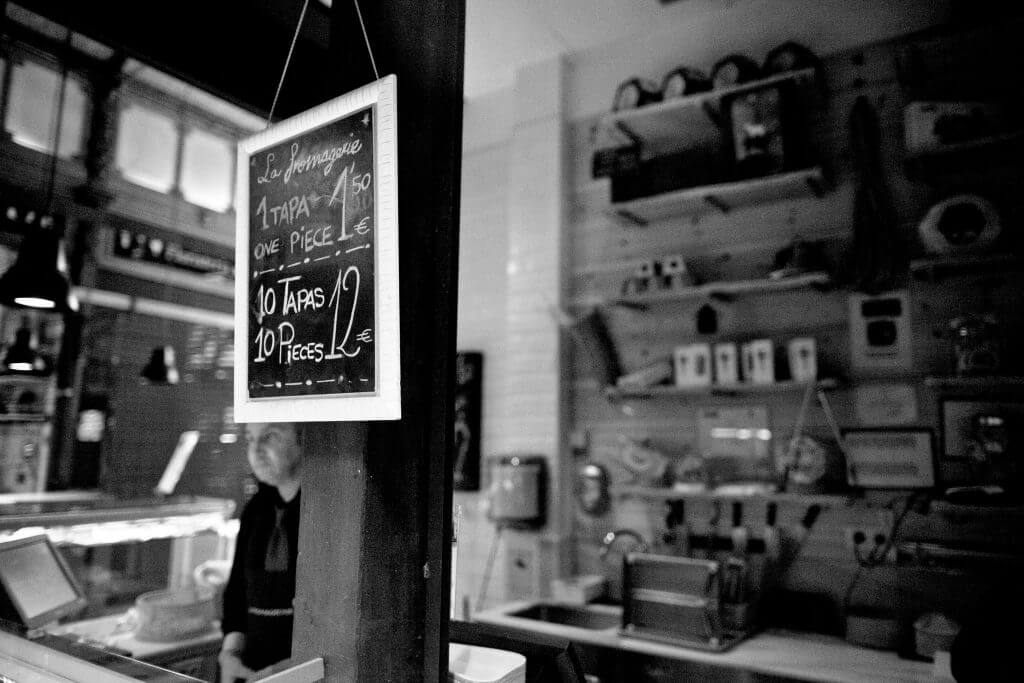 La fromagerie
1 TAPA - 1'50
ONE PIECE €
10 TAPAS 12
10 PIECES €